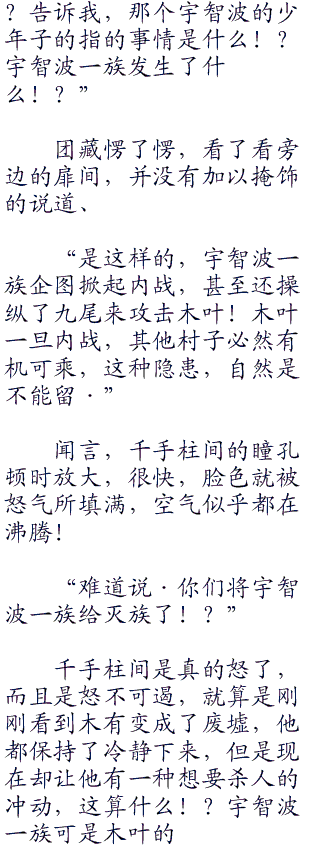 ？告诉我，那个宇智波的少
年子的指的事情是什么！？
宇智波一族发生了什
么！？”
团藏愣了愣，看了看旁
边的扉间，并没有加以掩饰
的说道、
“是这样的，宇智波一
族企图掀起内战，甚至还操
纵了九尾来攻击木叶！木叶
一旦内战，其他村子必然有
机可乘，这种隐患，自然是
不能留·”
闻言，千手柱间的瞳孔
顿时放大，很快，脸色就被
怒气所填满，空气似乎都在
沸腾！
“难道说·你们将宇智
波一族给灭族了！？”
千手柱间是真的怒了，
而且是怒不可遏，就算是刚
刚看到木有变成了废墟，他
都保持了冷静下来，但是现
在却让他有一种想要杀人的
冲动，这算什么！？宇智波
一族可是木叶的